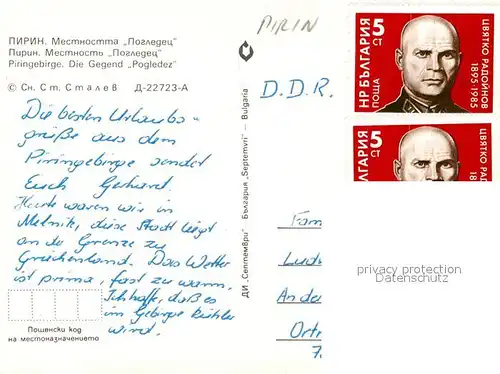 ПИРИН. Местността „Погледец"
Пирин. Местность „Погледец"
Piringebirge. Die Gegend „Pogledez"
© Сн. Ст. Сталев Д-22723-А
Die besten Urlaubs-
grüße aus dem
Piringebirge sendet
Euch Gerhard.
Heute waren wir in
Melnik, diese Stadt liegt
an der Grenze zu
Griechenland. Das Wetter
ist prima, fast zu warm.
Ich hoffe, daß es
im Gebirge kühler
wird.
Пощенски код
на местоназначението
ДИ „Септември" България „Septemvri" – Bulgaria
PIRIN
D.D.R.
НР БЪЛГАРИЯ
5 СТ
ПОЩА
ЦВЯТКО РАДОЙНОВ
1895-1985
БЪЛГАРИЯ
5 СТ
ЦВЯТКО РАДОЙНОВ
Fam
Ludw
An der
Ortr
7
privacy protection
Datenschutz